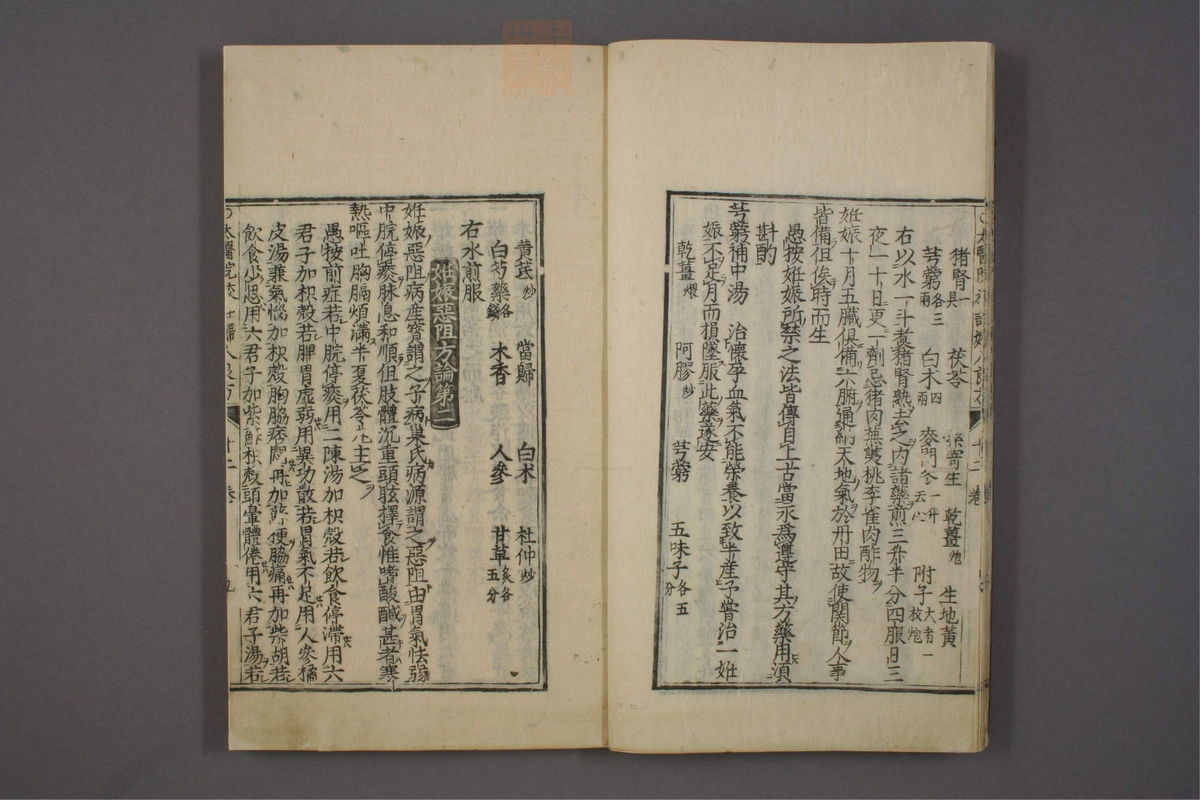 猪腎一具　茯苓　桑寄生　乾薑炮　生地黃
芎藭各三兩　白朮四兩　麥門冬一升去心　附子大者一枚炮
右以水一斗煮猪腎熟去之內諸藥煎三升半分四服日三
夜一十日更一劑忌猪肉蕪荑桃李雀肉酢物
妊娠十月五臟俱備六腑通納天地氣於丹田故使関節人事
皆備但俟時而生
愚按妊娠所禁之法皆傳自上古當永為遵守其方藥用湏
斟酌
芎藭補中湯　治懷孕血氣不能榮養以致半産予嘗治一妊
娠不足月而損墜服此藥遂安
乾薑煨　阿膠炒　芎藭　五味子各五分
黄芪炒　當歸　白朮　杜仲炒
白芍藥各一錢　木香　人參　甘草炙各五分
右水煎服
妊娠惡阻方論第二
妊娠惡阻病産寳謂之子病巢氏病源謂之惡阻由胃氣怯弱
中脘停痰脉息和順但肢體沉重頭眩擇食惟嗜酸鹹甚者寒
熱嘔吐胸膈煩滿半夏茯苓丸主之
愚按前症若中脘停痰用二陳湯加枳殻若飲食停滯用六
君子加枳殻若脾胃虚弱用異功散若胃氣不足用人參橘
皮湯兼氣惱加枳殻胸脇痞悶再加蘇梗脇痛再加柴胡若
飲食少思用六君子加紫蘇枳殻頭暈體倦用六君子湯若